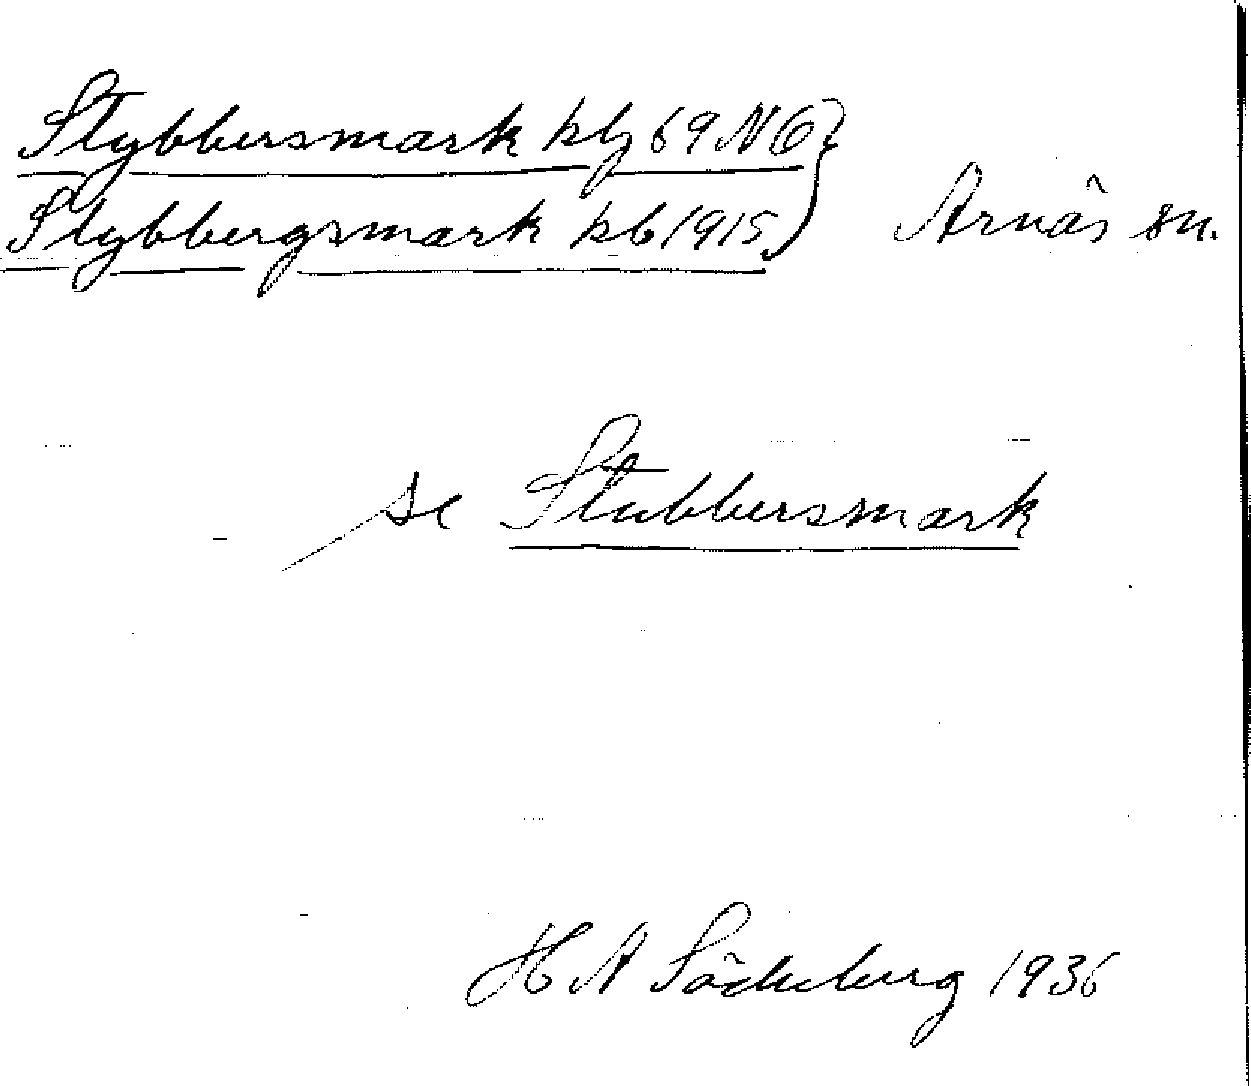 Stybbersmark kbl 69 NO
Stybbergsmark kb 1915
Arnäs sn.
se Stubbersmark
H A Söderberg 1936